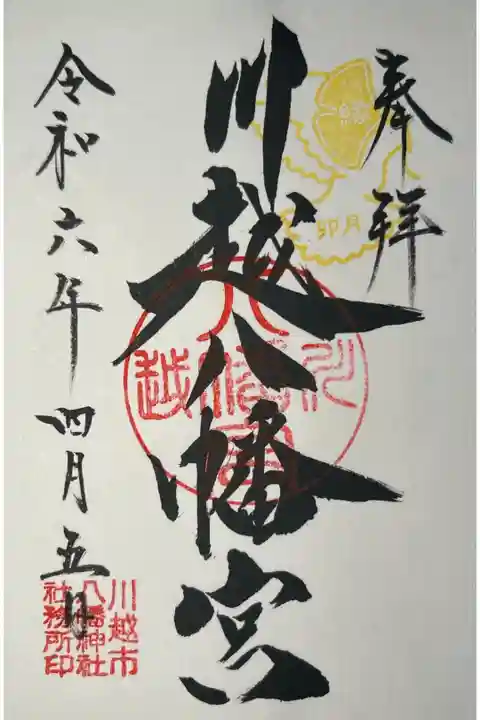 奉拝
卯月
川越八幡宮
令和六年四月五日
川越市
八幡神社
社務所印